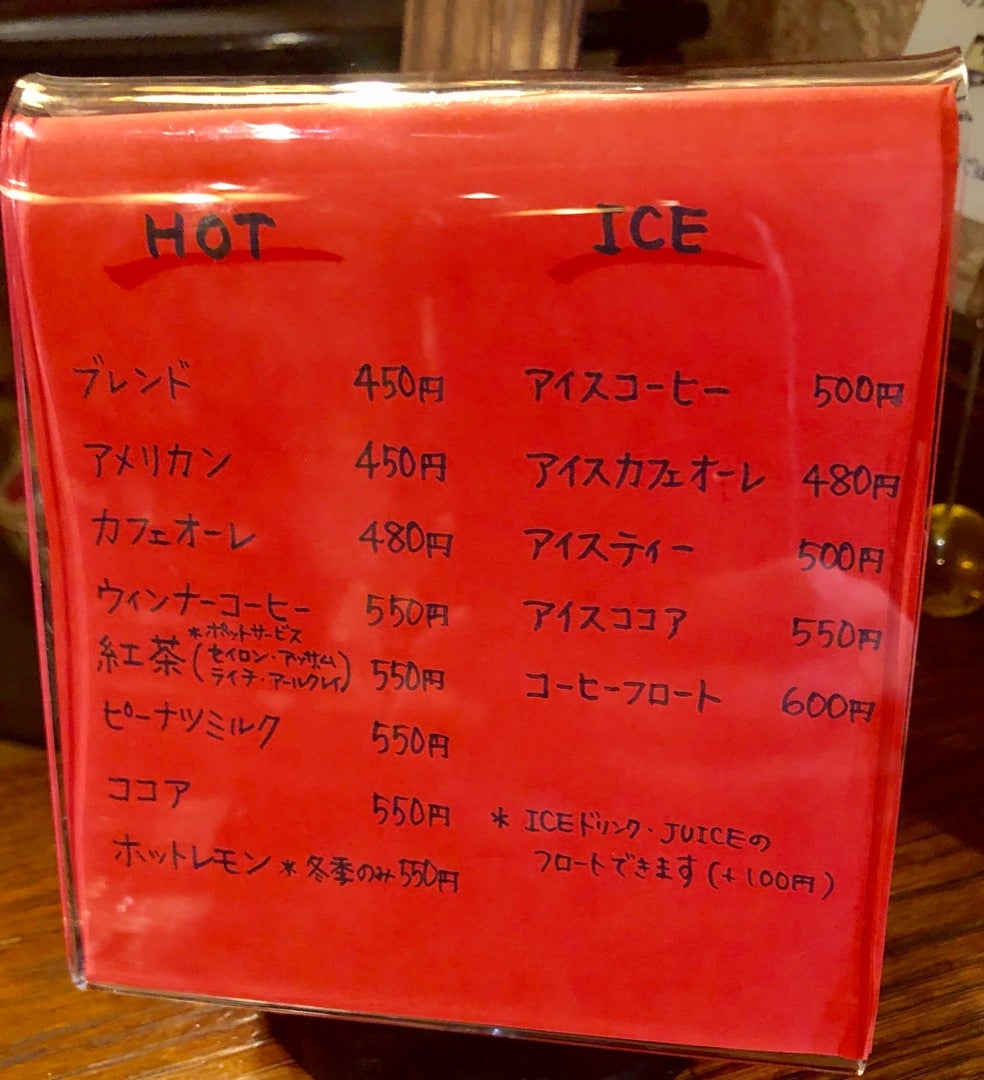 HOT
ブレンド 450円
アメリカン 450円
カフェオーレ 480円
ウィンナーコーヒー 550円
*ポットサービス
紅茶(セイロン・アッサム
ライチ・アールグレイ) 550円
ピーナツミルク 550円
ココア 550円
ホットレモン *冬季のみ 550円
ICE
アイスコーヒー 500円
アイスカフェオーレ 480円
アイスティー 500円
アイスココア 550円
コーヒーフロート 600円
* ICEドリンク・JUICEの
フロートできます(+100円)